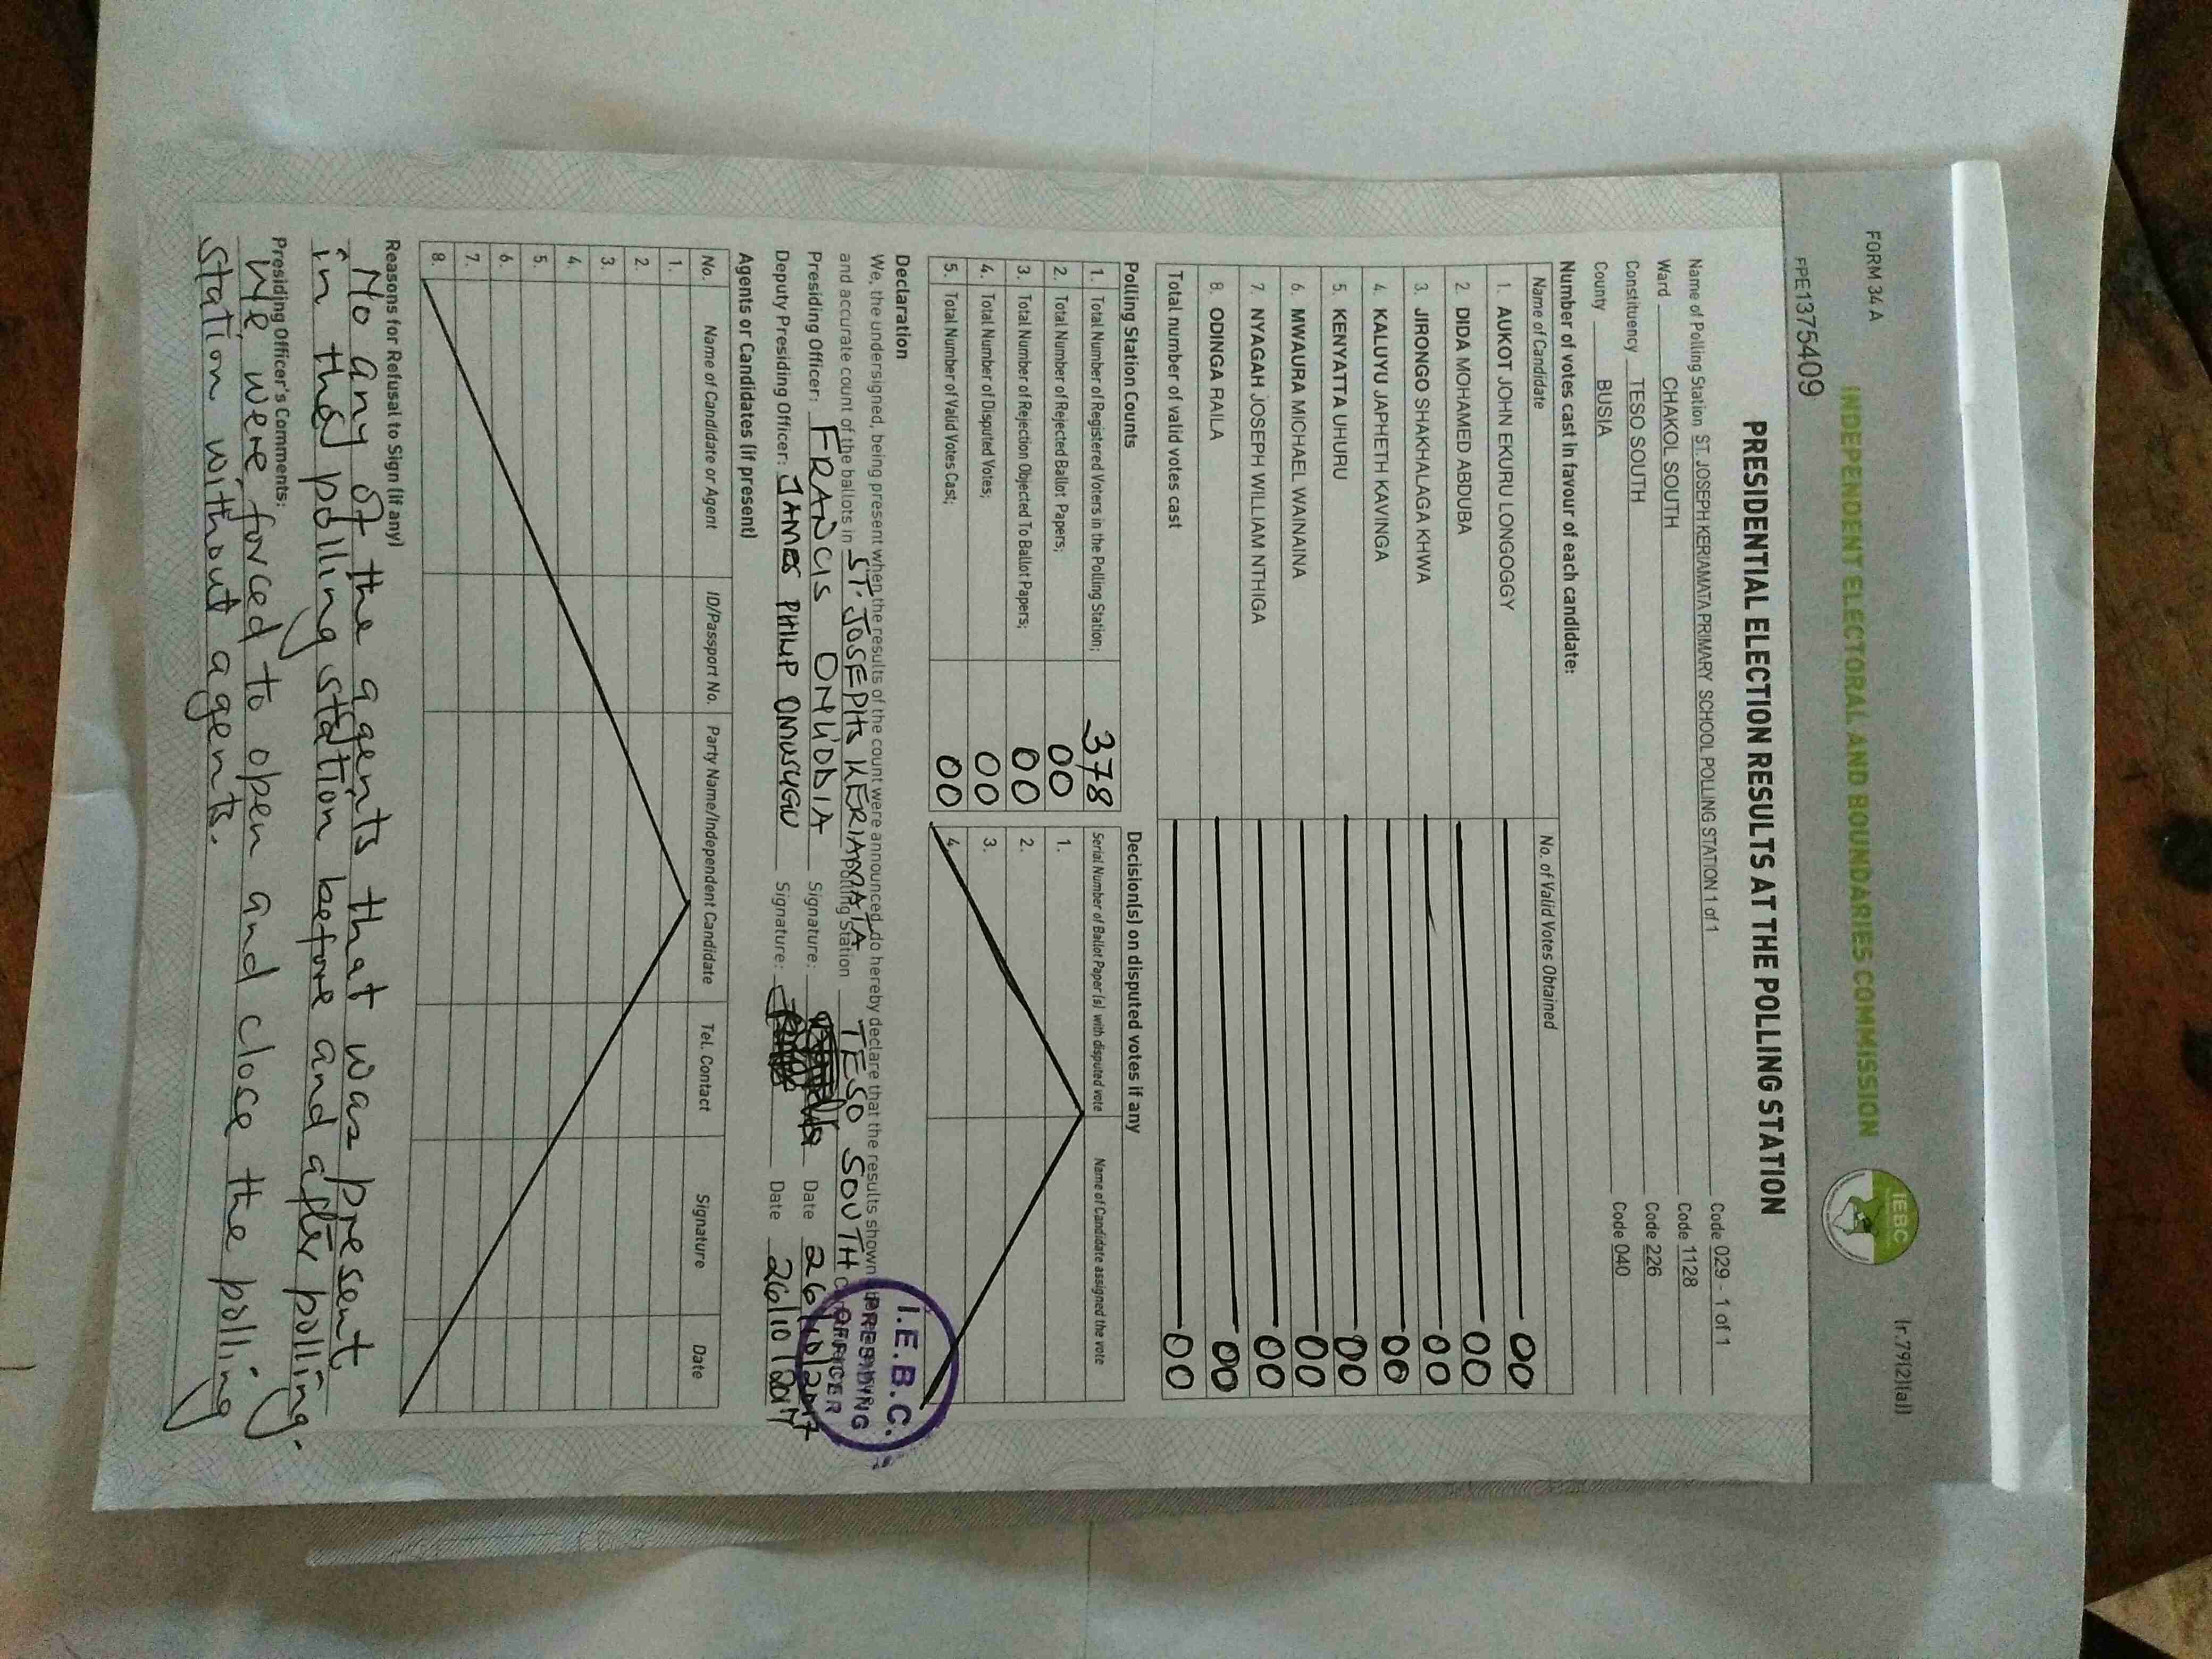 FORM 34 A
(r.79(2)(a))
INDEPENDENT ELECTORAL AND BOUNDARIES COMMISSION
IEBC
FPE1375409
PRESIDENTIAL ELECTION RESULTS AT THE POLLING STATION
Name of Polling Station ST. JOSEPH KERIAMATA PRIMARY SCHOOL POLLING STATION 1 of 1 Code 029 - 1 of 1
Ward CHAKOL SOUTH Code 1128
Constituency TESO SOUTH Code 226
County BUSIA Code 040
Number of votes cast in favour of each candidate:
Name of Candidate No. of Valid Votes Obtained
1. AUKOT JOHN EKURU LONGOGGY 00
2. DIDA MOHAMED ABDUBA 00
3. JIRONGO SHAKHALAGA KHWA 00
4. KALUYU JAPHETH KAVINGA 00
5. KENYATTA UHURU 00
6. MWAURA MICHAEL WAINAINA 00
7. NYAGAH JOSEPH WILLIAM NTHIGA 00
8. ODINGA RAILA 00
Total number of valid votes cast 00
Polling Station Counts
1. Total Number of Registered Voters in the Polling Station; 378
2. Total Number of Rejected Ballot Papers; 00
3. Total Number of Rejection Objected To Ballot Papers; 00
4. Total Number of Disputed Votes; 00
5. Total Number of Valid Votes Cast; 00
Decision(s) on disputed votes if any
Serial Number of Ballot Paper (s) with disputed vote Name of Candidate assigned the vote
1.
2.
3.
4.
Declaration
We, the undersigned, being present when the results of the count were announced, do hereby declare that the results shown
and accurate count of the ballots in ST. JOSEPHS KERIAMATA Polling Station TESO SOUTH
Presiding Officer: FRANCIS OMUODIA Signature: Date 26/10/2017
Deputy Presiding Officer: JAMES PHILIP OMUSUGU Signature: Date 26/10/2017
I.E.B.C.
PRESIDING
OFFICER
Agents or Candidates (if present)
No. Name of Candidate or Agent ID/Passport No. Party Name/Independent Candidate Tel. Contact Signature Date
1.
2.
3.
4.
5.
6.
7.
8.
Reasons for Refusal to Sign (if any)
No any of the agents that was present
in the polling station before and after polling.
Presiding Officer's Comments:
We were forced to open and close the polling
station without agents.